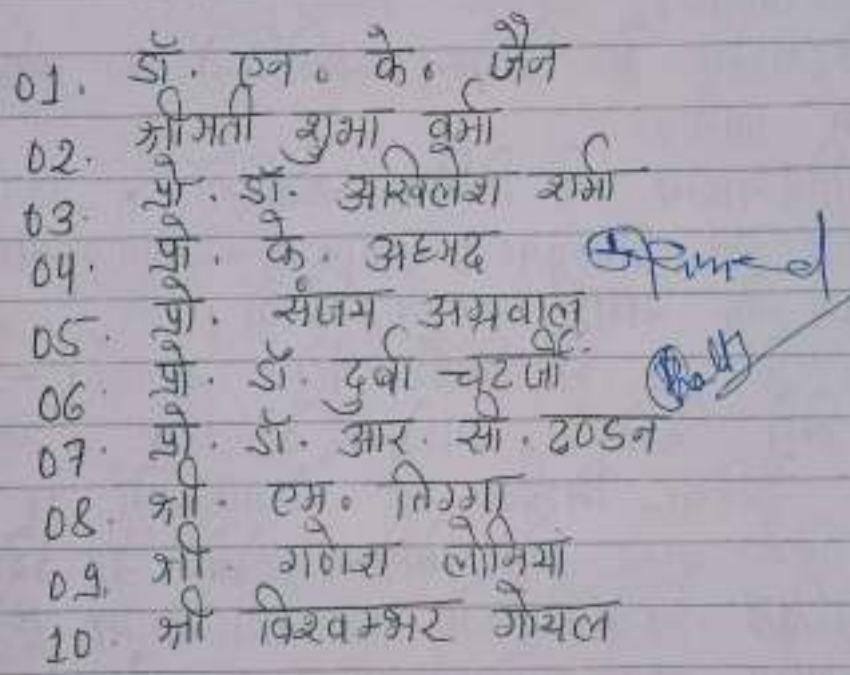 01. डॉ. एन. के. जैन
02. श्रीमती शुभा वर्मा
03. प्रो. डॉ. अखिलेश शर्मा
04. प्रो. के. अहमद
05. प्रो. संजय अग्रवाल
06. प्रो. डॉ. दुर्बा चटर्जी
07. प्रो. डॉ. आर. सी. टण्डन
08. श्री. एम. तिग्गा
09. श्री. गणेश लोनिया
10. श्री विश्वम्भर गोयल